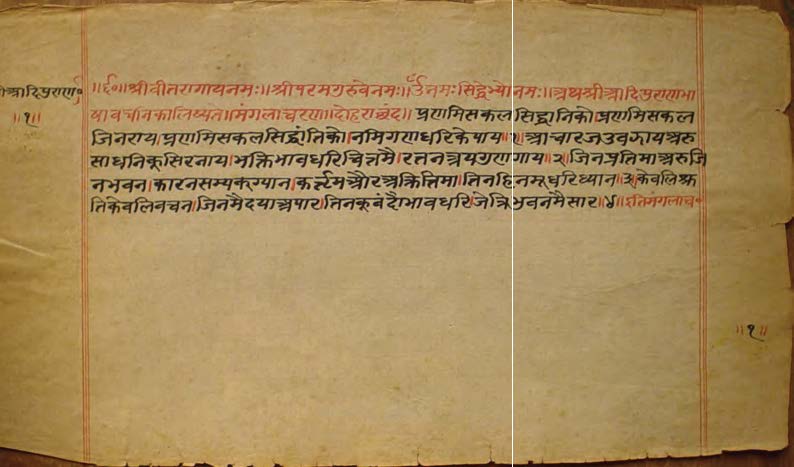 श्रीआदिपुराण॰
॥१॥
॥६०॥श्रीवीतरागायनमः॥श्रीपरमगुरुवेनमः॥ॐनमःसिद्धेभ्योनमः॥अथश्रीआदिपुराणभा
षावचनिकालिष्यते॥मंगलाचरण॥दोहराछंद॥प्रणमिसकलसिद्धातिको।प्रणमिसकल
जिनराय।प्रणमिसकलसिद्धांतिको।नमिगणधरिकेपाय।१।आचारजउवझायअरु
साधनिकूसिरनाय।भक्तिभावधरिचित्तमै।रतनत्रयगुणगाय।२।जिनप्रतिमाअरुजि
नभवन।कारनसम्यकग्यान।कर्त्तमऔरअक्रित्तिमा।तिनहिनमूधरिध्यान।३।केवलिश्रु
तिकेवलिवचन।जिनमैदयाअपार।तिनकूबंदौभावधरि।जेत्रिभुवनमैसार॥४॥इतिमंगलाच॰
॥१॥